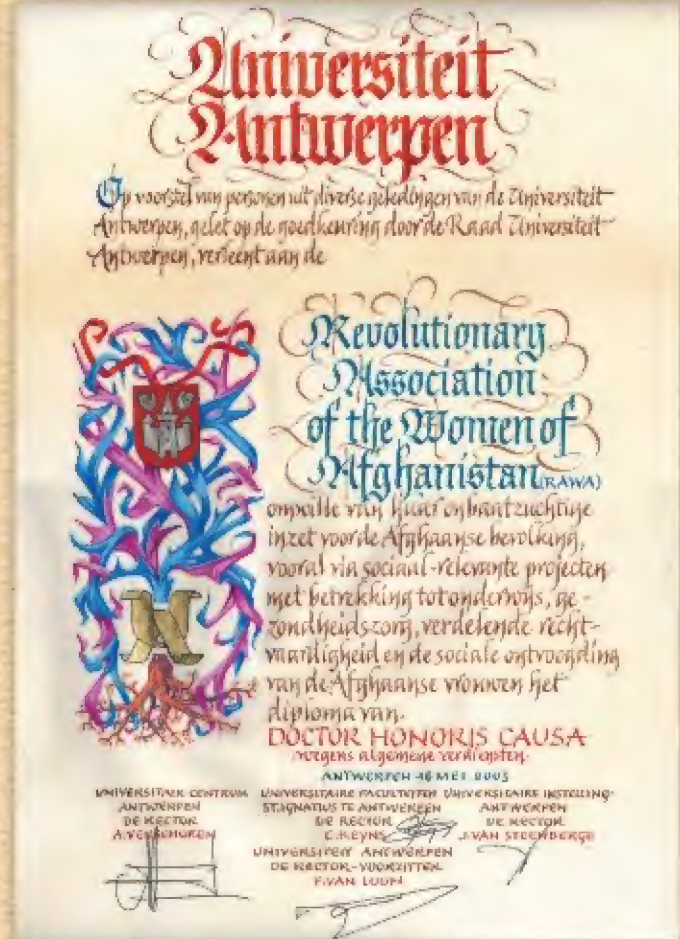 Universiteit
Antwerpen
Op voorstel van personen uit diverse geledingen van de Universiteit
Antwerpen, gelet op de goedkeuring door de Raad Universiteit
Antwerpen, verleent aan de
Revolutionary
Association
of the Women of
Afghanistan (RAWA)
omwille van haar onbaatzuchtige
inzet voor de Afghaanse bevolking,
vooral via sociaal-relevante projecten
met betrekking tot onderwijs, ge-
zondheidszorg, verdelende recht-
vaardigheid en de sociale ontvoogding
van de Afghaanse vrouwen het
diploma van
DOCTOR HONORIS CAUSA
wegens algemene verdiensten
ANTWERPEN 16 MEI 2003
UNIVERSITAIR CENTRUM
ANTWERPEN
DE RECTOR
A. VERSCHOREN
UNIVERSITAIRE FACULTEITEN
ST. IGNATIUS TE ANTWERPEN
DE RECTOR
C. REYNS
UNIVERSITAIRE INSTELLING
ANTWERPEN
DE RECTOR
J. VAN STEENBERGE
UNIVERSITEIT ANTWERPEN
DE RECTOR-VOORZITTER
F. VAN LOON